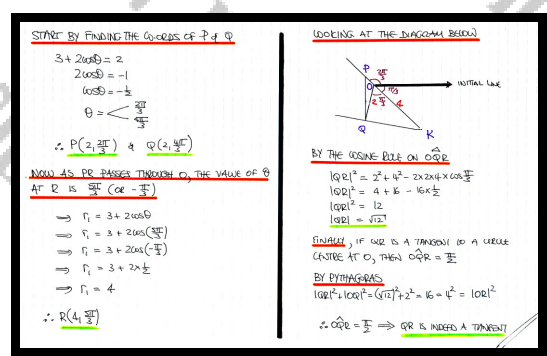 START BY FINDING THE CO-ORDS OF P & Q
3 + 2cosθ = 2
2cosθ = -1
cosθ = -1/2
θ = < 2π/3
4π/3
∴ P(2, 2π/3) & Q(2, 4π/3)
NOW AS PR PASSES THROUGH O, THE VALUE OF θ
AT R IS 5π/3 (OR -π/3)
⇒ r₁ = 3 + 2cosθ
⇒ r₁ = 3 + 2cos(5π/3)
⇒ r₁ = 3 + 2cos(-π/3)
⇒ r₁ = 3 + 2×1/2
⇒ r₁ = 4
∴ R(4, 5π/3)
LOOKING AT THE DIAGRAM BELOW
P
2π/3
O
π/3
INITIAL LINE
2
π/3
4
Q
R
BY THE COSINE RULE ON OQ̂R
|QR|² = 2² + 4² - 2×2×4×cos π/3
|QR|² = 4 + 16 - 16×1/2
|QR|² = 12
|QR| = √12
FINALLY, IF QR IS A TANGENT TO A CIRCLE
CENTRE AT O, THEN OQ̂R = π/2
BY PYTHAGORAS
|QR|² + |OQ|² = (√12)² + 2² = 16 = 4² = |OR|²
∴ OQ̂R = π/2 ⇒ QR IS INDEED A TANGENT